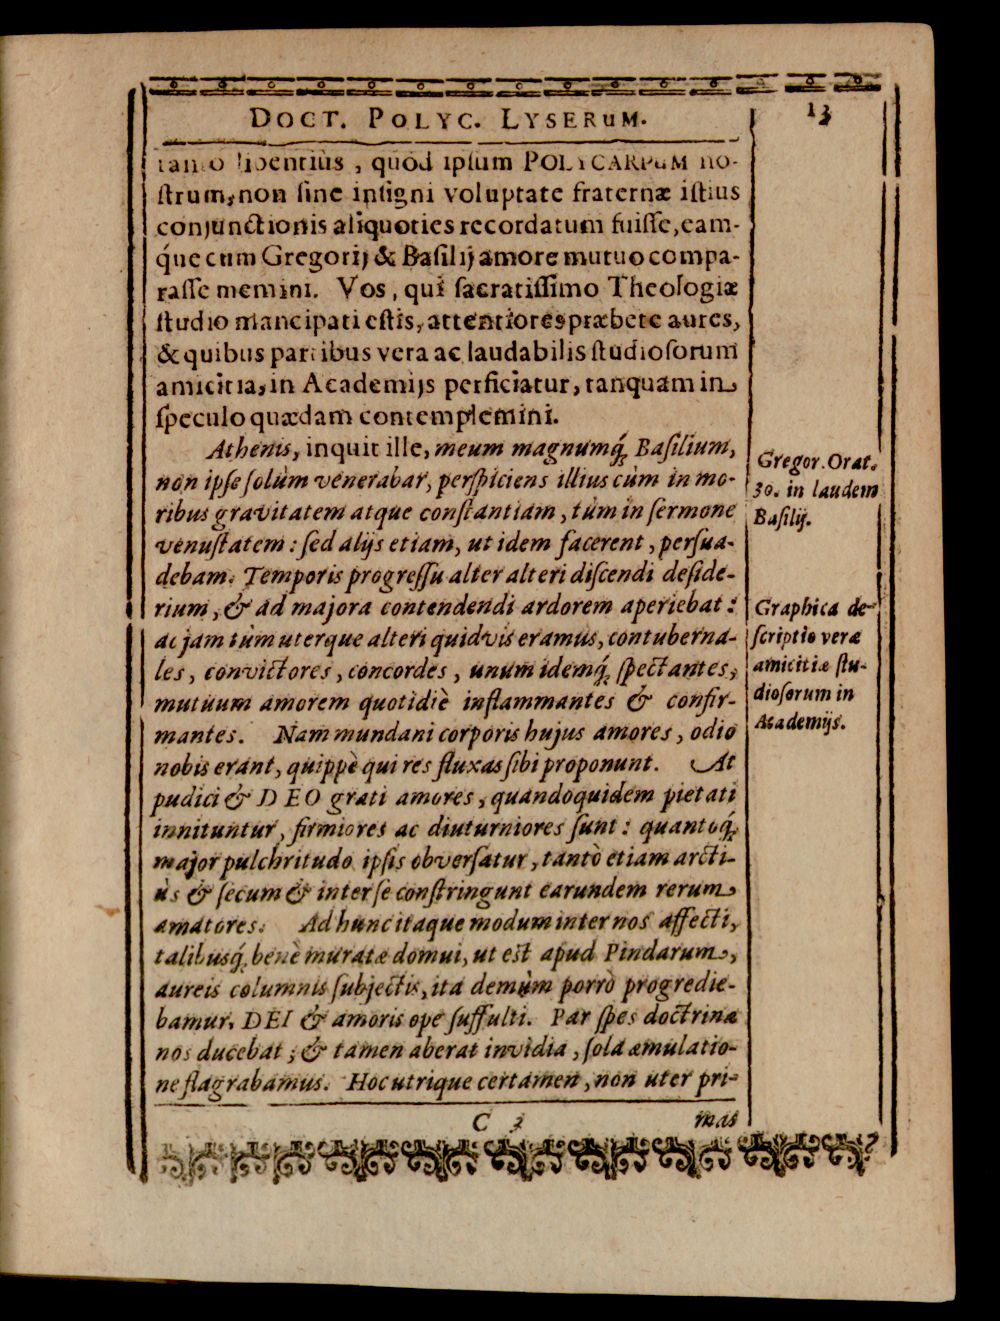 DOCT. POLYC. LYSERuM.
13
tanto libentiùs, quod ipsum POLYCARPuM no-
ſtrum, non ſine inſigni voluptate fraternæ iſtius
conjunctionis aliquoties recordatum fuiſſe, eam-
q́ue cum Gregorij & Baſilij amore mutuo compa-
raſſe memini. Vos, qui ſacratiſſimo Theologiæ
ſtudio mancipati eſtis, attentiores præbete aures,
& quibus partibus vera ac laudabilis ſtudioſorum
amicitia, in Academijs perficiatur, tanquam in
ſpeculo quædam contemplemini.
Athenis, inquit ille, meum magnumq́; Baſilium,
non ipſe ſolùm venerabar, perſpiciens illius cùm in mo-
ribus gravitatem atque conſtantiam, tùm in ſermone
venuſtatem: ſed alijs etiam, ut idem facerent, perſua-
debam. Temporis progreſſu alter alteri diſcendi deſide-
rium, & ad majora contendendi ardorem aperiebat:
ac jam tùm uterque alteri quidvis eramus, contuberna-
les, convictores, concordes, unum idemq́; ſpectantes,
mutuum amorem quotidiè inflammantes & confir-
mantes. Nam mundani corporis hujus amores, odio
nobis erant, quippè qui res fluxas ſibi proponunt. At
pudici & DEO grati amores, quandoquidem pietati
innituntur, firmiores ac diuturniores ſunt: quantoq́;
major pulchritudo ipſis obverſatur, tantò etiam arcti-
ùs & ſecum & inter ſe conſtringunt earundem rerum
amatores. Ad hunc itaque modum inter nos affecti,
talibusq́; benè muratæ domui, ut eſt apud Pindarum,
aureis columnis ſubjectis, ita demùm porrò progredie-
bamur, DEI & amoris ope ſuffulti. Par ſpes doctrinæ
nos ducebat; & tamen aberat invidia, ſola æmulatio-
ne flagrabamus. Hoc utrique certamen, non uter pri-
C 3 mas
Gregor. Orat.
30. in laudem
Baſilij.
Graphica de-
ſcriptio veræ
amicitiæ ſtu-
dioſorum in
Academijs.